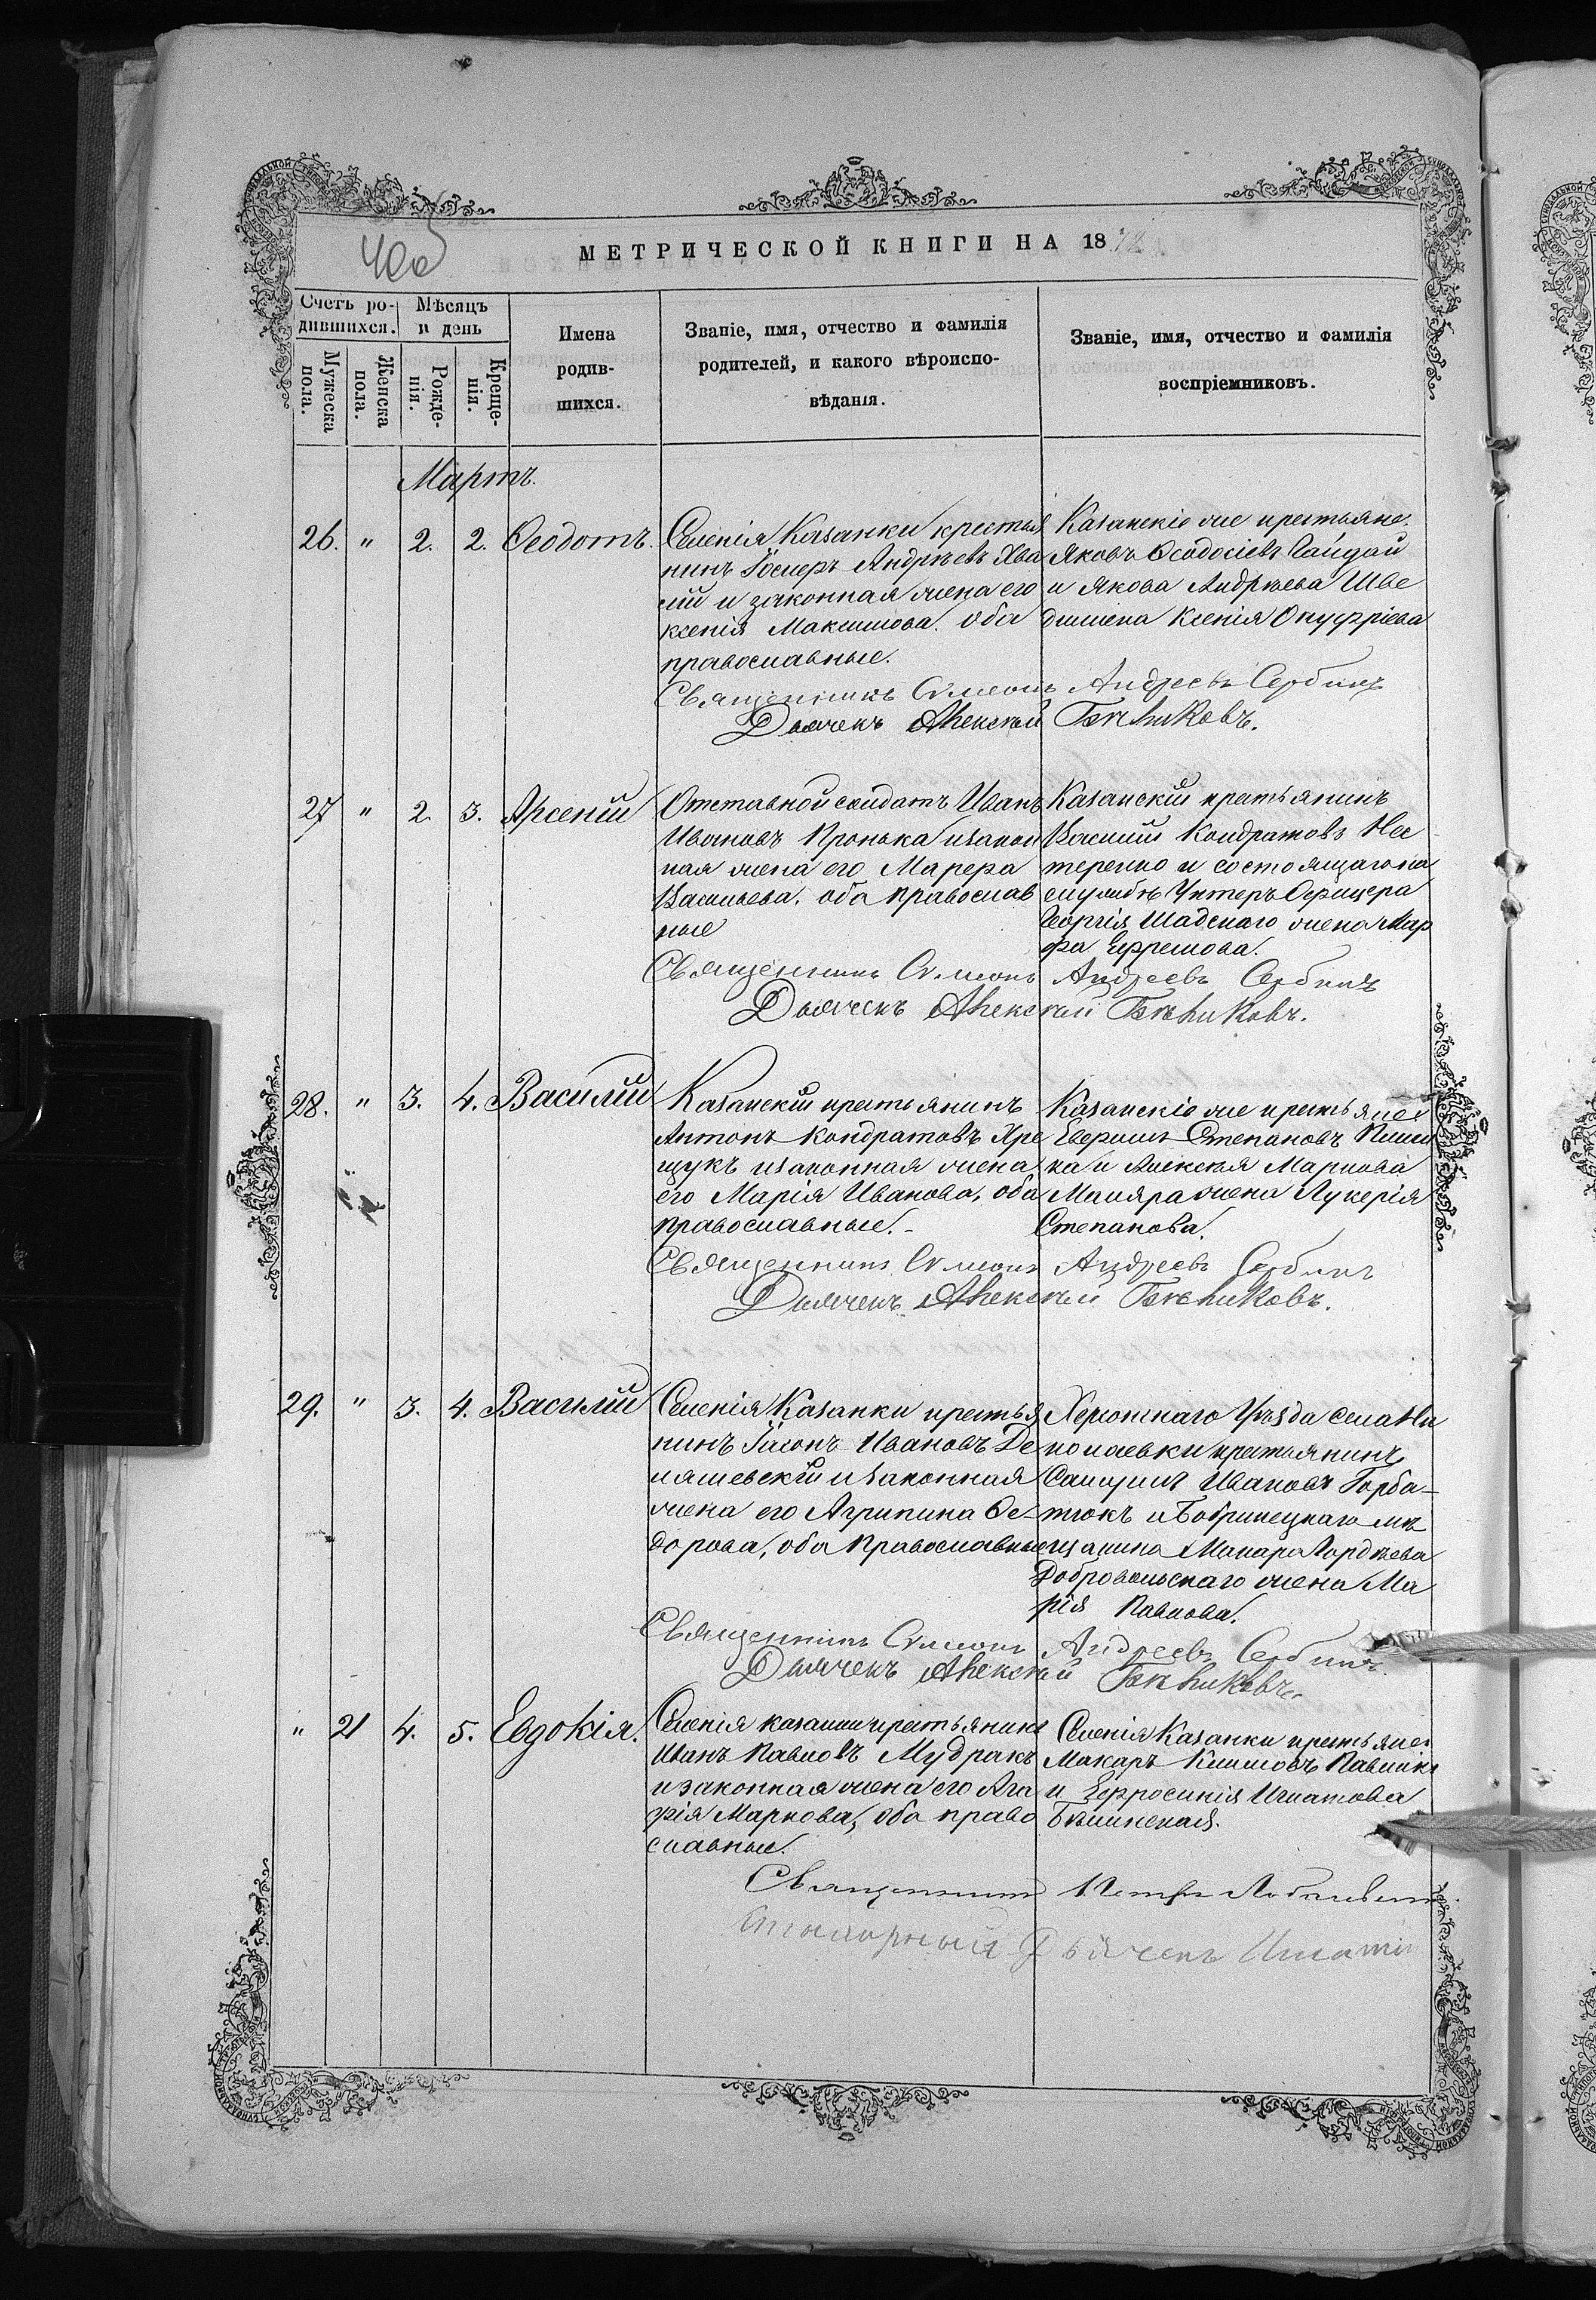 МЕТРИЧЕСКОЙ КНИГИ НА 1872
Счетъ ро-
дившихся.
Мѣсяцъ
и день
Мужеска
пола.
Женска
пола.
Рожде-
нія.
Креще-
нія.
Имена
родив-
шихся.
Званіе, имя, отчество и фамилія
родителей, и какого вѣроиспо-
вѣданія.
Званіе, имя, отчество и фамилія
воспріемниковъ.
Мартъ.
26. " 2. 2. Ѳеодотъ.
Селенія Казанки крестья
нинъ Андрѣевъ Хва
лій и законная жена его
Ксенія Максимова. оба
православные.
Казанскіе же крестьяне.
Яковъ Ѳеодосіевъ Гайдай
и Якова Андрѣева Шве
дина жена Ксенія Онуфріева
Священникъ Сѵмеонъ Андреевъ Сербинъ
Дьячекъ Алексѣй Бѣликовъ.
27 " 2. 3. Арсеній
Отставной солдатъ Иванъ
Ивановъ Пронька и закон
ная жена его Марфа
Васильева. оба православ
ные
Казанскій крестьянинъ
Василій Кондратовъ Нес
теренко и состоящаго на
службѣ Унтеръ Офицера
Георгія Шадскаго жена Мар
фа Ефремова.
Священникъ Сѵмеонъ Андреевъ Сербинъ
Дьячекъ Алексѣй Бѣликовъ.
28. " 3. 4. Василій
Казанскій крестьянинъ
Антонъ Кондратовъ Хре
щукъ и законная жена
его Марія Иванова, оба
православные. -
Казанскіе же крестьяне
Степановъ
ка и Алексѣя Маркова
Маляра жена Лукерія
Степанова.
Священникъ Сѵмеонъ Андреевъ Сербинъ
Дьячекъ Алексѣй Бѣликовъ.
29. " 3. 4. Василій
Селенія Казанки крестья
нинъ Ивановъ Де
ляшевскій и законная
жена его Агрипина Ѳе-
дорова, оба православные
Херсонскаго Уѣзда села Ни
колаевки крестьянинъ
Самуилъ Ивановъ Горба-
тюкъ и Бобринецкаго мѣ
щанина Макара Гордѣева
Добровольскаго жена Ма
рія Павлова.
Священникъ Сѵмеонъ Андреевъ Сербинъ
Дьячекъ Алексѣй Бѣликовъ.
" 21 4. 5. Евдокія.
Селенія Казанки крестьянинъ
Иванъ Павловъ Мудракъ
и законная жена его Ага
фія Маркова, оба право
славные.
Селенія Казанки крестьяне
Макаръ Климовъ
и Ефросинія Игнатова
Бѣлинская.
Священникъ Петръ
Дьячекъ